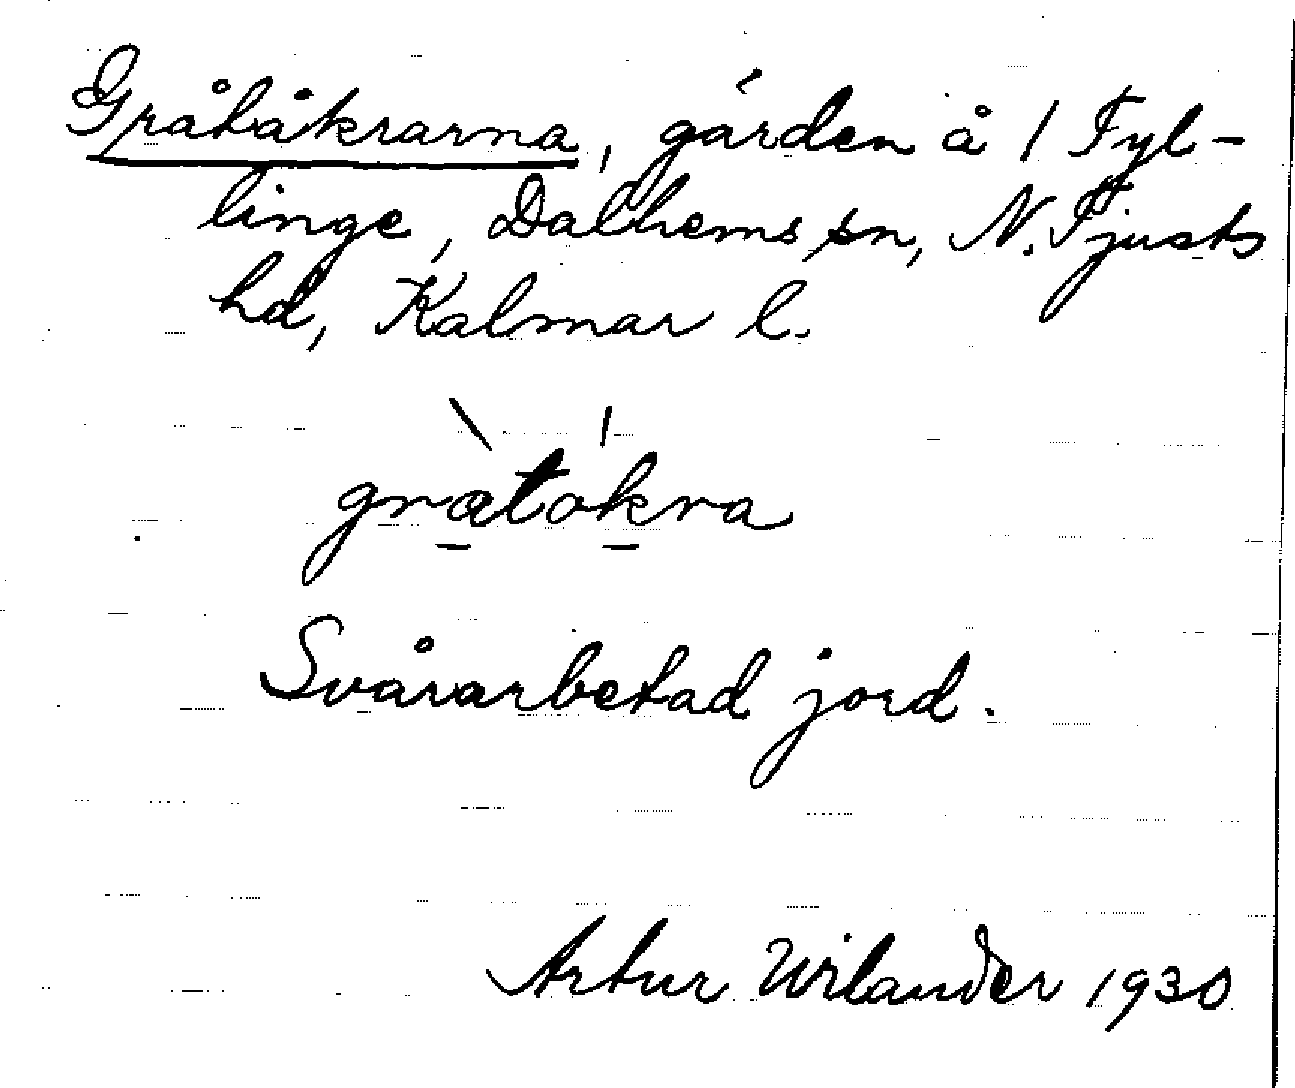 Gråtåkrarna, gärden å 1 Fyl-
linge, Dalhems sn, N. Tjusts
hd, Kalmar l.
grætokra
Svårarbetad jord.
Artur Wilander 1930